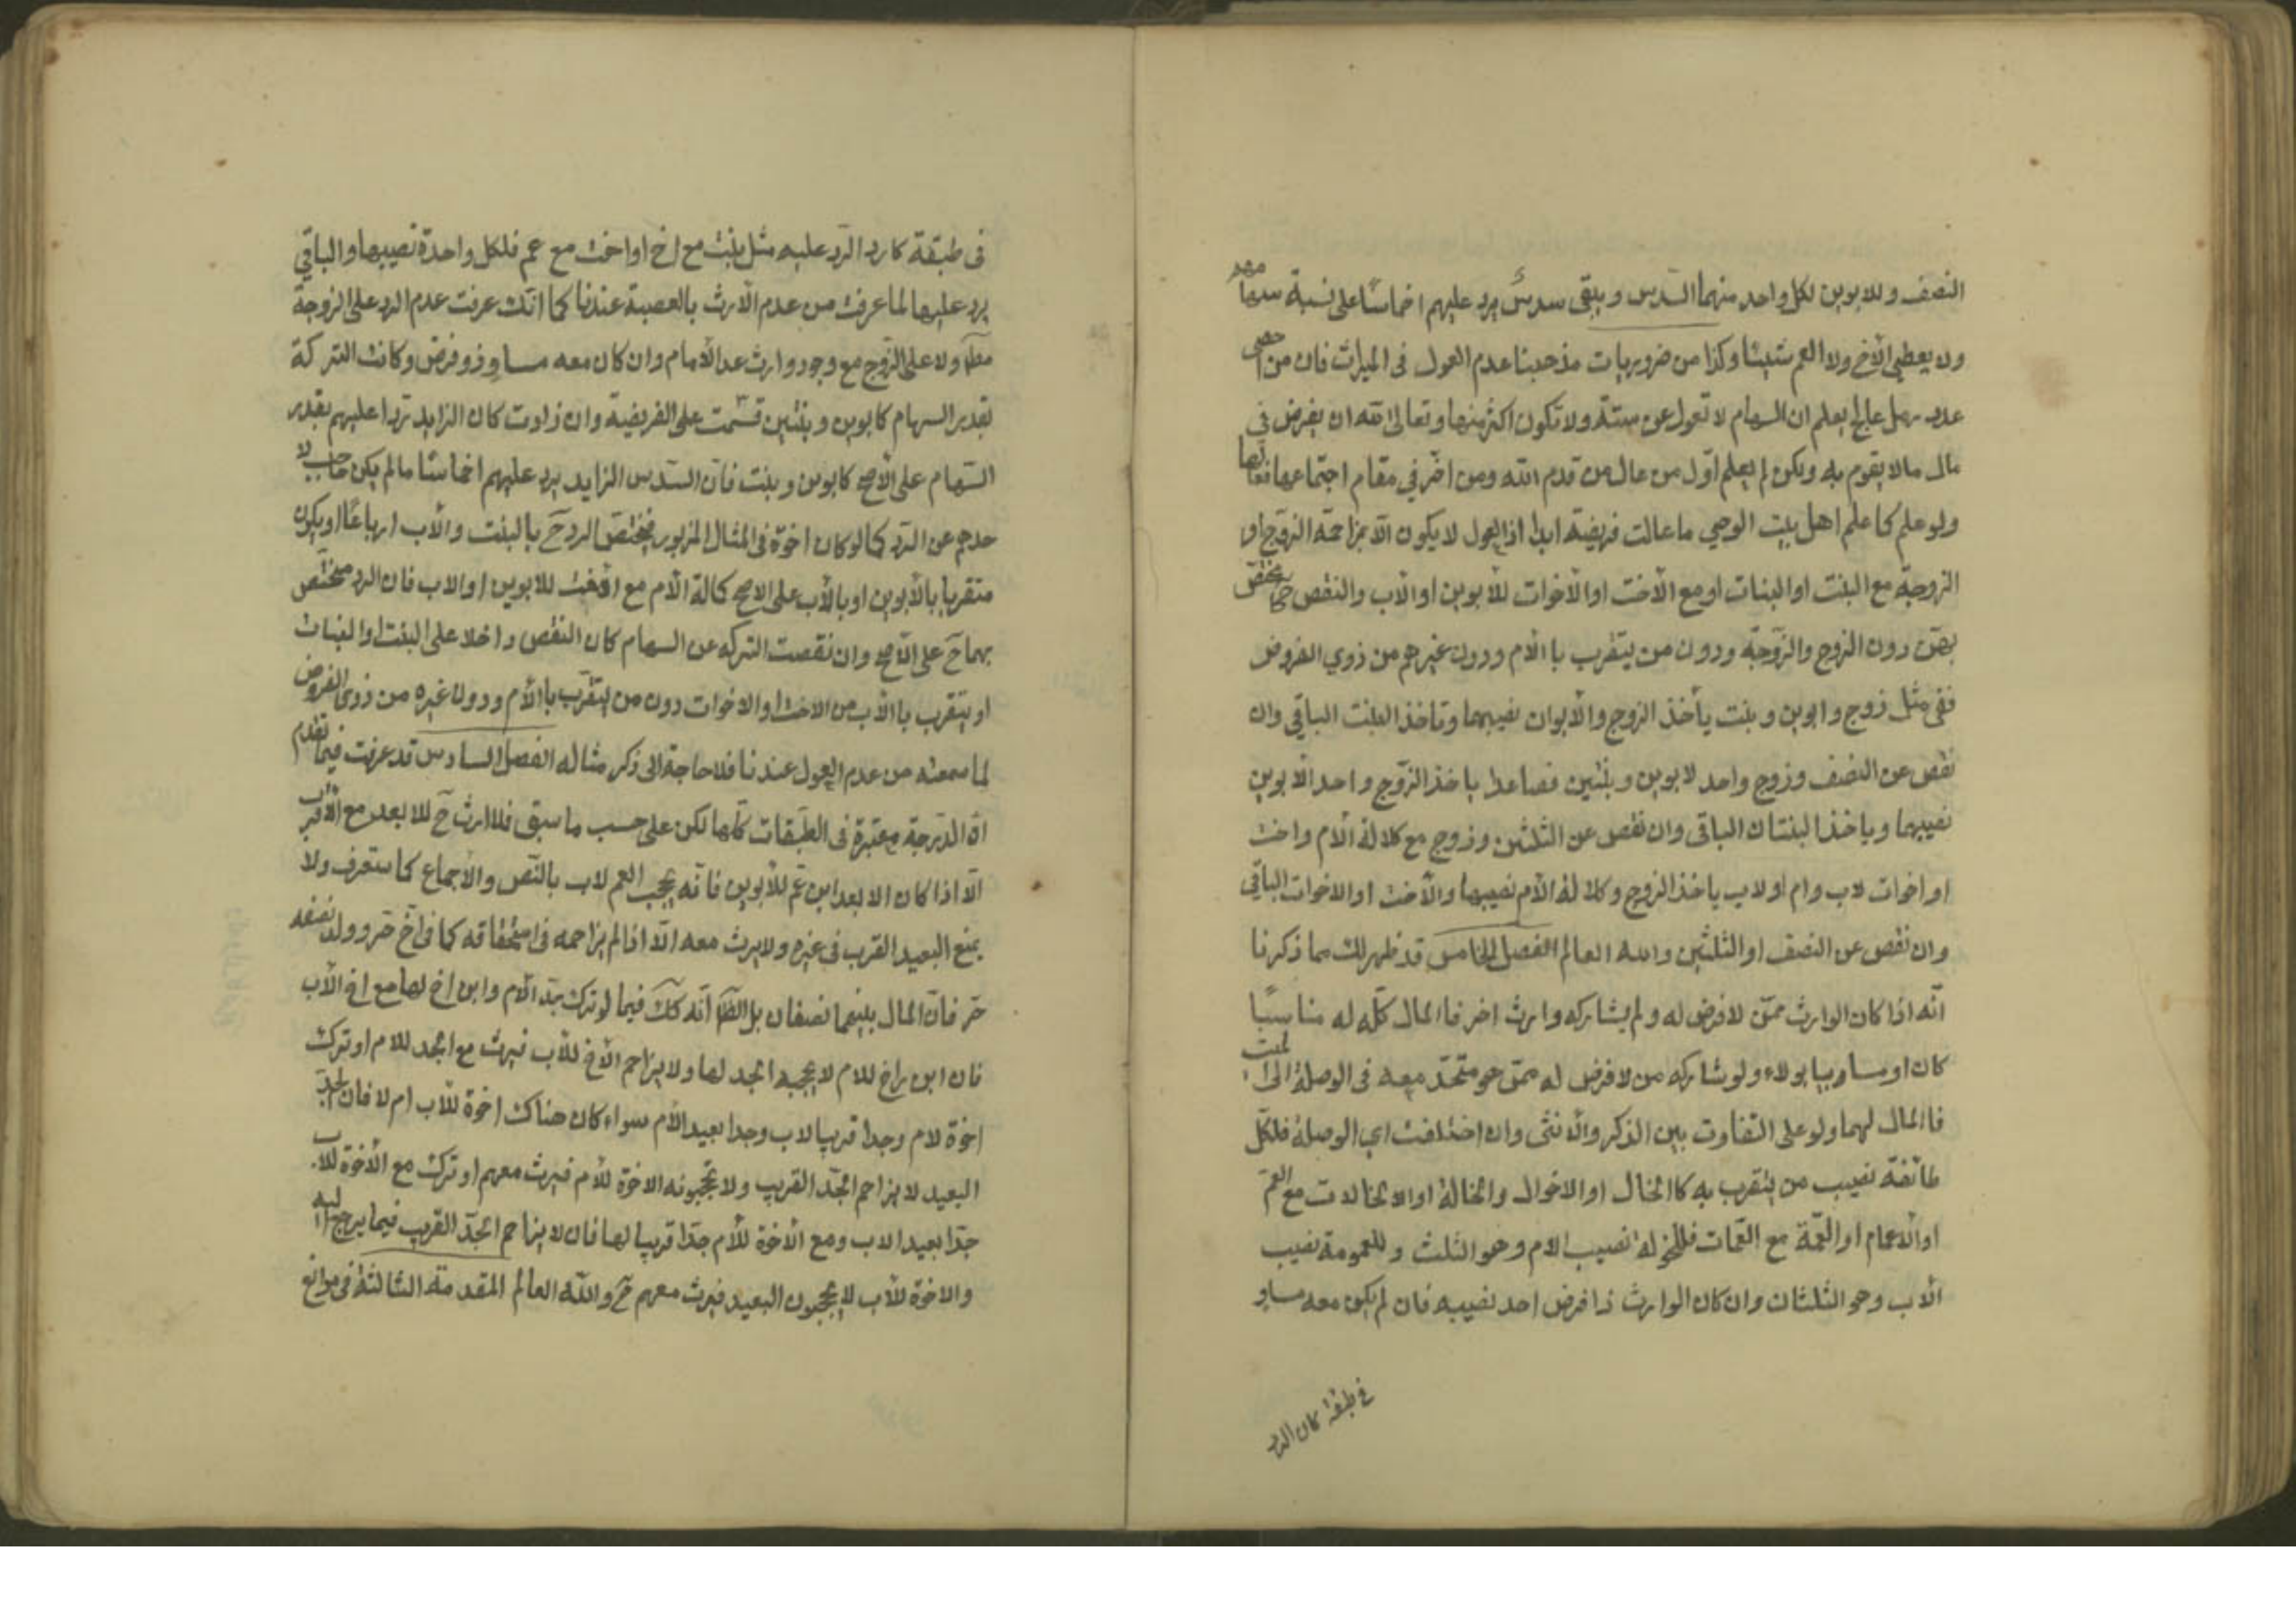 النصف وللابوين لكل واحد منهما السدس ويبقى سدس يرد عليهم اخماسًا على نسبة سهامهم
ولا يعطى الأخ ولا العم شيئا وكذا من ضروريات مذهبنا عدم العول فى الميراث فان من احصى
عدد رمل عالج ليعلم ان السهام لا تعول عن ستة ولا تكون اكثر منها وتعالى الله ان يفرض في
مال مالا يقوم به ولكن لم يعلم اول من عال من قدم الله ومن اخر في مقام اجتماعها فعالها
ولو علم كما علم اهل بيت الوحي ما عالت فريضة ابدا اذ العول لا يكون الا بمزاحمة الزوج او
الزوجة مع البنت او البنات او مع الأخت او الأخوات للأبوين او الأب والنقص ح يختص
بهن دون الزوج والزوجة ودون من يتقرب بالأم ودون غيرهم من ذوي الفروض
ففى مثل زوج وابوين وبنت يأخذ الزوج والأبوان نصيبهما وتاخذ البنت الباقي وان
نقص عن النصف وزوج واحد لابوين وبنتين فصاعدا ياخذ الزوج واحد الأبوين
نصيبهما وياخذ البنتان الباقى وان نقص عن الثلثين وزوج مع كلالة الأم واخت
او اخوات لاب وام او لاب ياخذ الزوج وكلالة الأم نصيبهما والأخت او الاخوات الباقي
وان نقص عن النصف او الثلثين والله العالم الفصل الخامس قد ظهر لك مما ذكرنا
أنه اذا كان الوارث ممن لا فرض له ولم يشاركه وارث اخر فالمال كله له مناسبًا
كان او مساببا بولاء ولو شاركه من لا فرض له ممن هو متحد معه فى الوصلة الى الميت
فالمال لهما ولو على التفاوت بين الذكر والأنثى وان اختلفت اي الوصلة فلكل
طائفة نصيب من يتقرب به كالخال او الاخوال والخالة او الخالات مع العم
او الأعمام او العمة مع العمات فللخولة نصيب الام وهو الثلث وللعمومة نصيب
الأب وهو الثلثان وان كان الوارث ذا فرض اخذ نصيبه فان لم يكن معه مساو
فى طبقة كان الرد
فى طبقة كان رد الرد عليه مثل بنت مع اخ او اخت مع عم فلكل واحدة نصيبها والباقي
يرد عليها لما عرفت من عدم الارث بالعصبة عندنا كما انك عرفت عدم الرد على الزوجة
مطلقا ولا على الزوج مع وجود وارث عدا الأمام وان كان معه مساو ذو فرض وكانت التركة
بقدر السهام كابوين وبنتين قسمت على الفريضة وان زادت كان الزايد ردا عليهم بقدر
السهام على الأصح كابوين وبنت فان السدس الزايد يرد عليهم اخماسًا ما لم يكن حاجب لا
حدهم عن الرد كما لو كان اخوة فى المثال المزبور فيختص الرد ح بالبنت والأب ارباعًا او يكون
متقربا بالأبوين او بالأب على الاصح كالة الأم مع الأخت للابوين او الاب فان الرد مختص
بهما ح على الأصح وان نقصت التركه عن السهام كان النقص داخلا على البنت او البنات
او يتقرب بالأب من الاخت او الاخوات دون من يتقرب بالأم ودون غيره من ذوى الفروض
لما سمعته من عدم العول عندنا فلا حاجة الى ذكر مثاله الفصل السادس قد عرفت فيما تقدم
ان الدرجة معتبرة فى الطبقات كلها لكن على حسب ما سبق فلا ارث ح للابعد مع الأقرب
الا اذا كان الابعد ابن عم للأبوين فانه يحجب العم لاب بالنص والأجماع كما ستعرف ولا
يمنع البعيد القرب فى غيره ولا يرث معه الا اذا لم يزاحمه فى استحقاقه كما فى اخ حر وولد نصفه
حر فان المال بينهما نصفان بل الظاهر انه كك فيما لو ترك جد الأم وابن اخ لها مع اخ الأب
فان ابن اخ للام لا يحجبه الجد لها ولا يزاحم الأخ للأب فيرث مع الجد للام او ترك
اخوة لام وجدا قريبا لاب وجدا بعيد الأم سواء كان هناك اخوة للأب ام لا فان الجد
البعيد لا يزاحم الجد القريب ولا يحجبونه الاخوة للأم فيرث معهم او ترك مع الأخوة للاب
جدا بعيد الاب ومع الأخوة للأم جدا قريبا لها فان لا يزاحم الجد القريب فيما يرجع اليه
والاخوة للأب لا يحجبون البعيد فيرث معهم ح والله العالم المقدمة الثالثة فى موانع